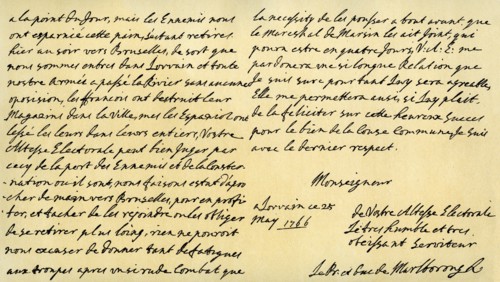 a la point du Jour, mais les Ennemis nous
ont espernié cette pain, s'utant retires
hier au soir vers Bruselles, de sort que
nous sommes entrés dans Lorvain et toute
nostre Armée a passé la Rivier sans aucune
oposision, les francois ont destruit leur
Magazins dans la Ville, mes les Espaniol ont
lessé les leurs dans leurs entiers, Vostre
Altesse Electorale peut bien Juger par
cecy de la port des Ennemis et de la Conster-
nation ou il sont, nous faisons estat d'apo-
cher demayn vers Bruselles, pour en profi-
ter, et tacher de les rejondre ou les obliger
de se retirer plus loing, rien ne pouvoit
nous excuser de donner tant de fatigues
aux troupes apres un si rude Combat que
la necisity de les pousser a bout avant que
le Mareshal de Marsin les ait Joint, qui
poura estre en quatre Jours, V: A: E: me
pardonera une si longue Relation que
Je suis sure pourtant luy sera agreable
Elle me permettera aussi, si luy plait,
de la feliciter sur cette heureux succes
pour le bien de la Cause Commune, Je suis
avec le dernier respect.
Monseigneur
a Lorvain ce 25
May 1766
de Vostre Altesse Electorale
le tres humble et tres
obeissant Serviteur
Le Pr. et Duc de Marlborough